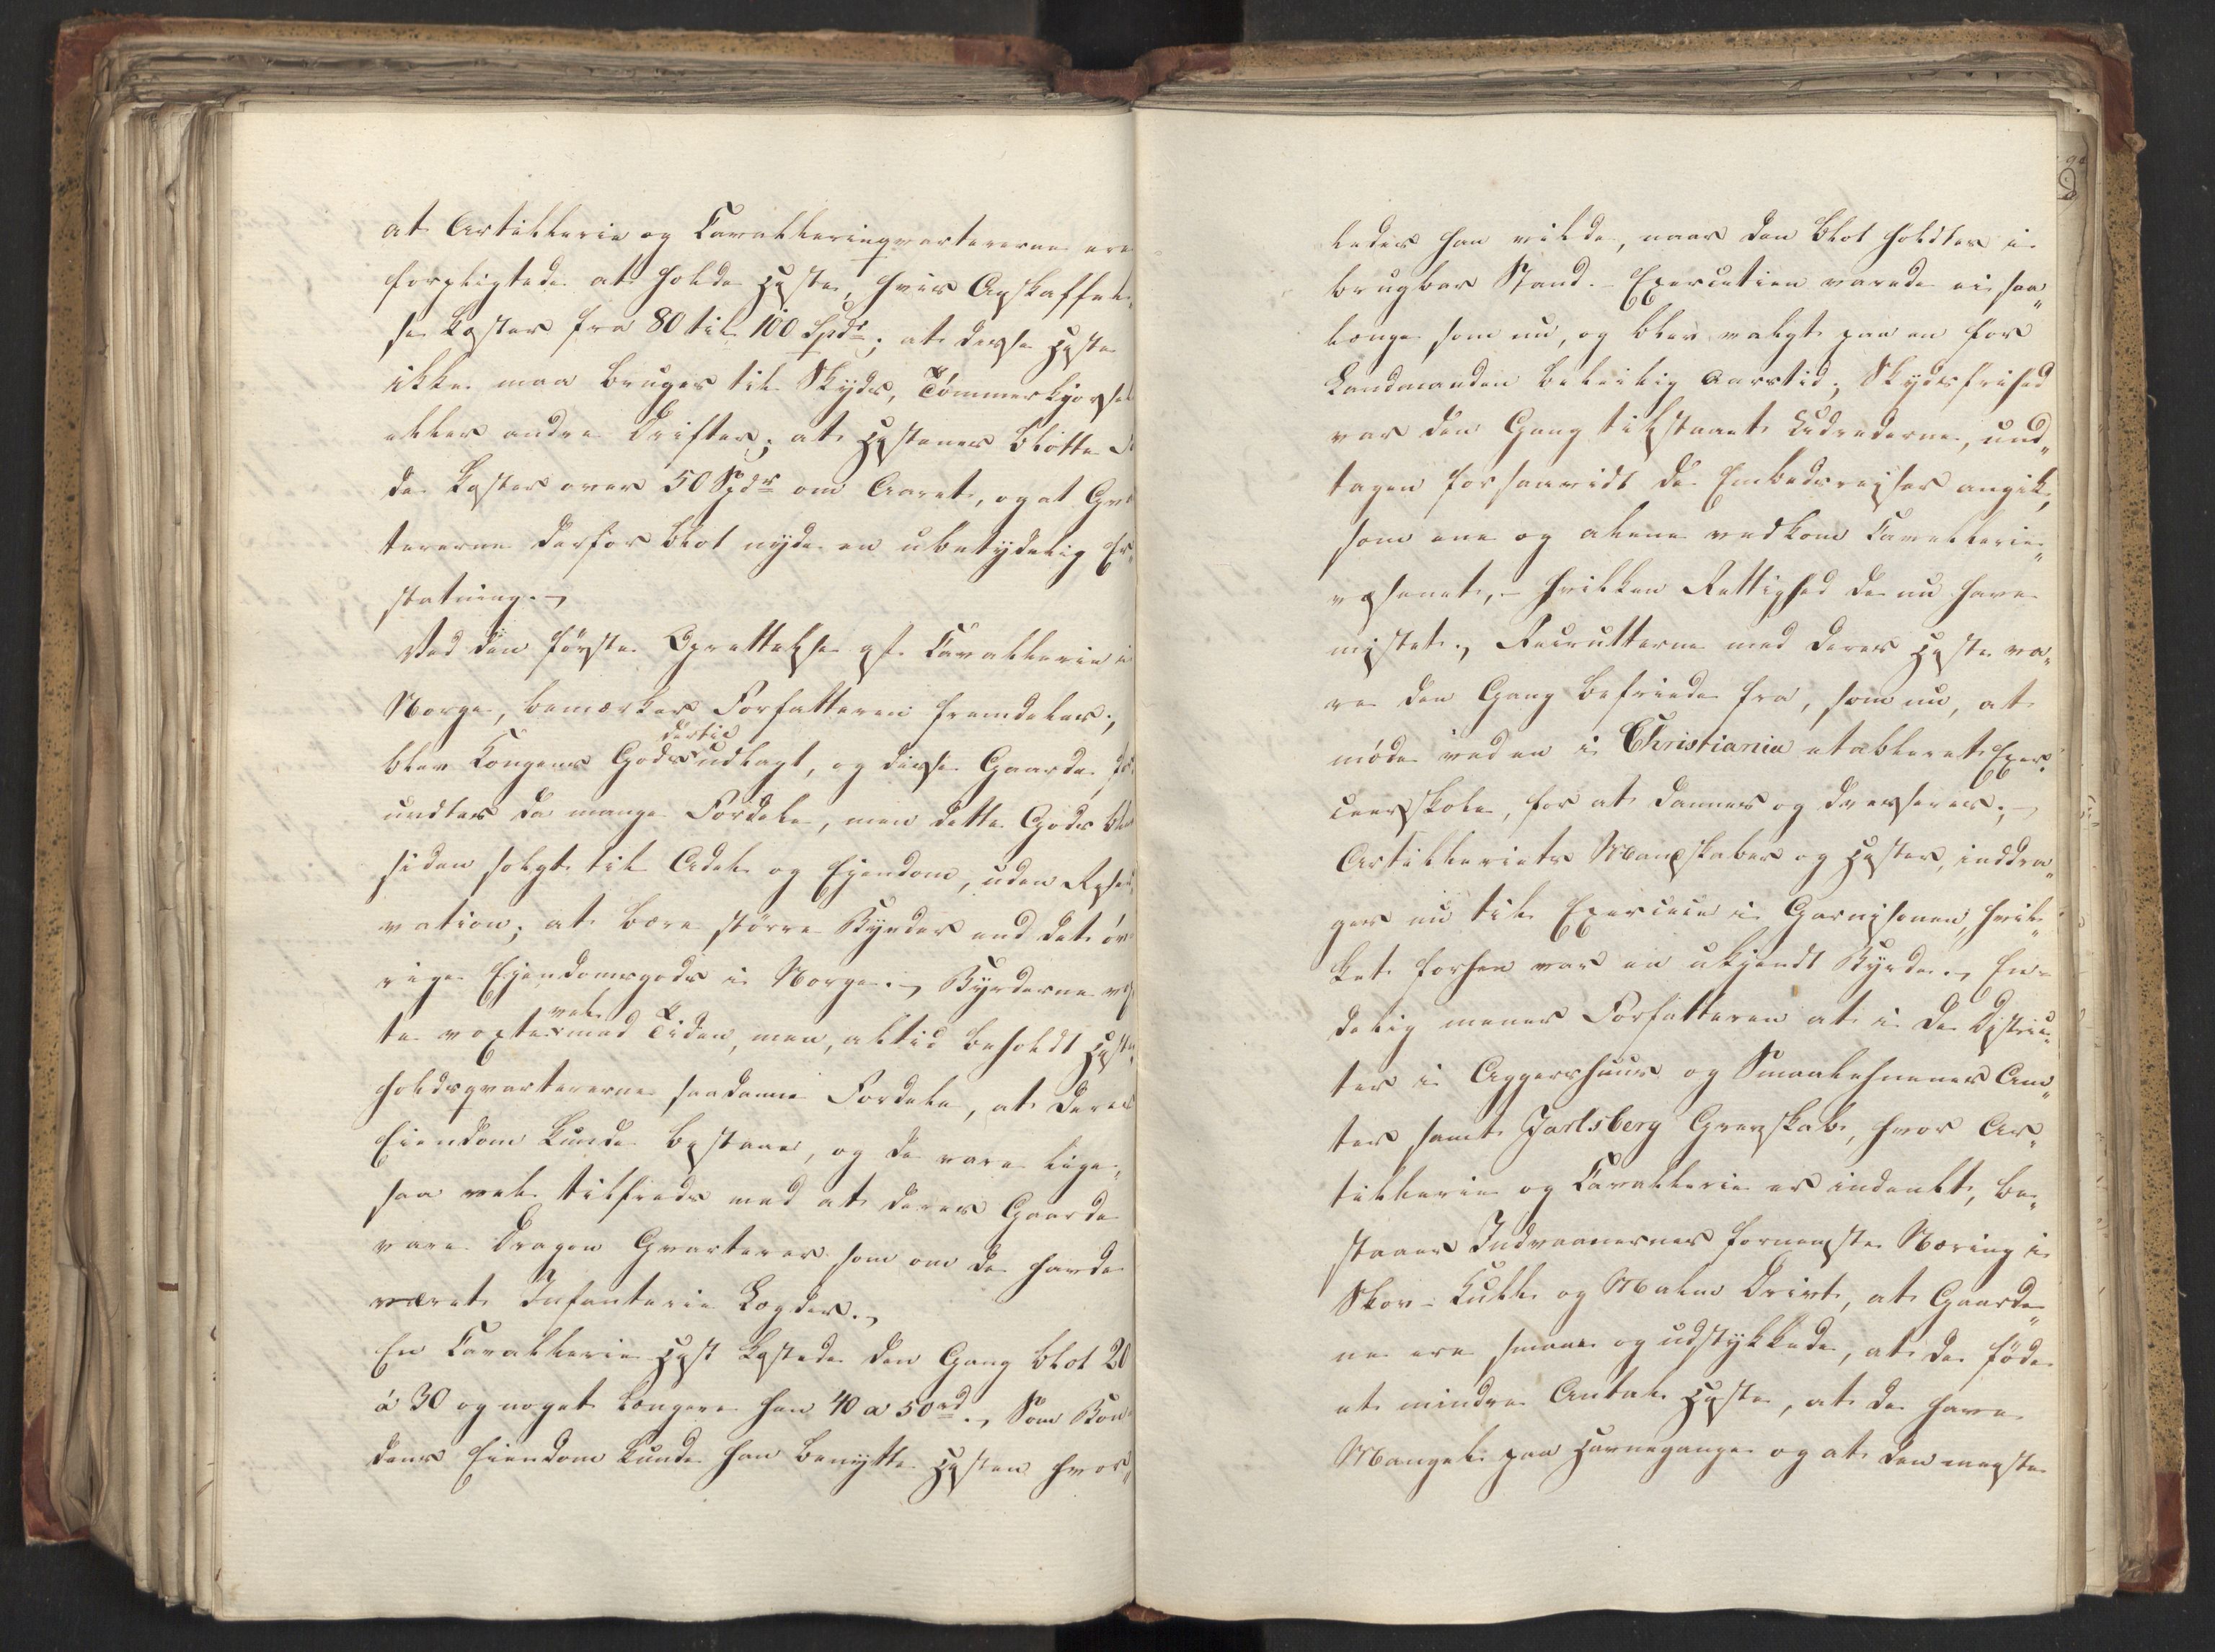 at Artillerie og Cavallerieqvartererne ere
forpligtede at holde Heste, hvis Anskaffel„
se koster fra 80 til 100 Spdr; at disse Heste
ikke maa bruges til Skyds, Tømmerkjørsel
eller andre Drifter; at Hestenes blotte
de koster over 50 Spdr om Aaret, og at Qvar
tererne derfor blot nyde en ubetydelig Er„
statning.
Ved den første Oprettelse af Cavallerie i
Norge, bemærker Forfatteren fremdeles,
dertil
blev Kongens Gods udlagt, og disse Gaarde for
undtes da mange Fordele, men dette Gods blev
siden solgt til Adel og Eiendom, uden Reser
vation; at bære større Byrder end det øv
rige Eiendomsgods i Norge. Byrderne
vel
te voxte med Tiden, men, altid beholdt Heste
holdsqvartererne saadanne Fordele, at deres
Eiendom kunde bestaae, og de vare lige„
saa vel tilfreds med at deres Gaarde
vare Dragon Qvarterer som om de havde
været Infanterie Lægder.
En Cavallerie Hest kostede den Gang blot 20
à 30 og noget længere hen 40 a 50 rd. Som Bon
dens Eiendom kunde han benytte Hesten hvor„
ledes han vilde, naar den blot holdtes i
brugbar Stand. Exercitien varede ei saa„
længe som nu, og blev valgt paa en for
Landmanden beleilig Aarstid; Skydsfrihed
var den Gang tilstaaet Udrederne, und„
tagen forsaavidt de Embedsreiser angik,
som ene og alene vedkom Cavallerie„
væsenet, – hvilken Rettighed de nu have
mistet. Recrutterne med deres Heste va„
re den Gang befriede fra, som nu, at
møde ved en i Christiania etableret Exer„
ceerskole, for at dannes og dresseres;
Artilleriets Mandskaber og Hester, inddra„
ges nu til Exercice i Garnisonen, hvil„
ket forhen var en ukjendt Byrde. En„
delig mener Forfatteren at i de Distric„
ter i Aggershuus og Smaalehnenes Am„
ter samt Jarlsberg Grevskab, hvor Ar„
tillerie og Cavallerie er indeelt, be„
staaer Indvaanernes fornemste Næring i
Skov- Kull- og Malm Drivt, at Gaarde„
ne ere smaae og udstykkede, at de føde
et mindre Antal Heste, at de have
Mangel paa Havnegange og at den meeste